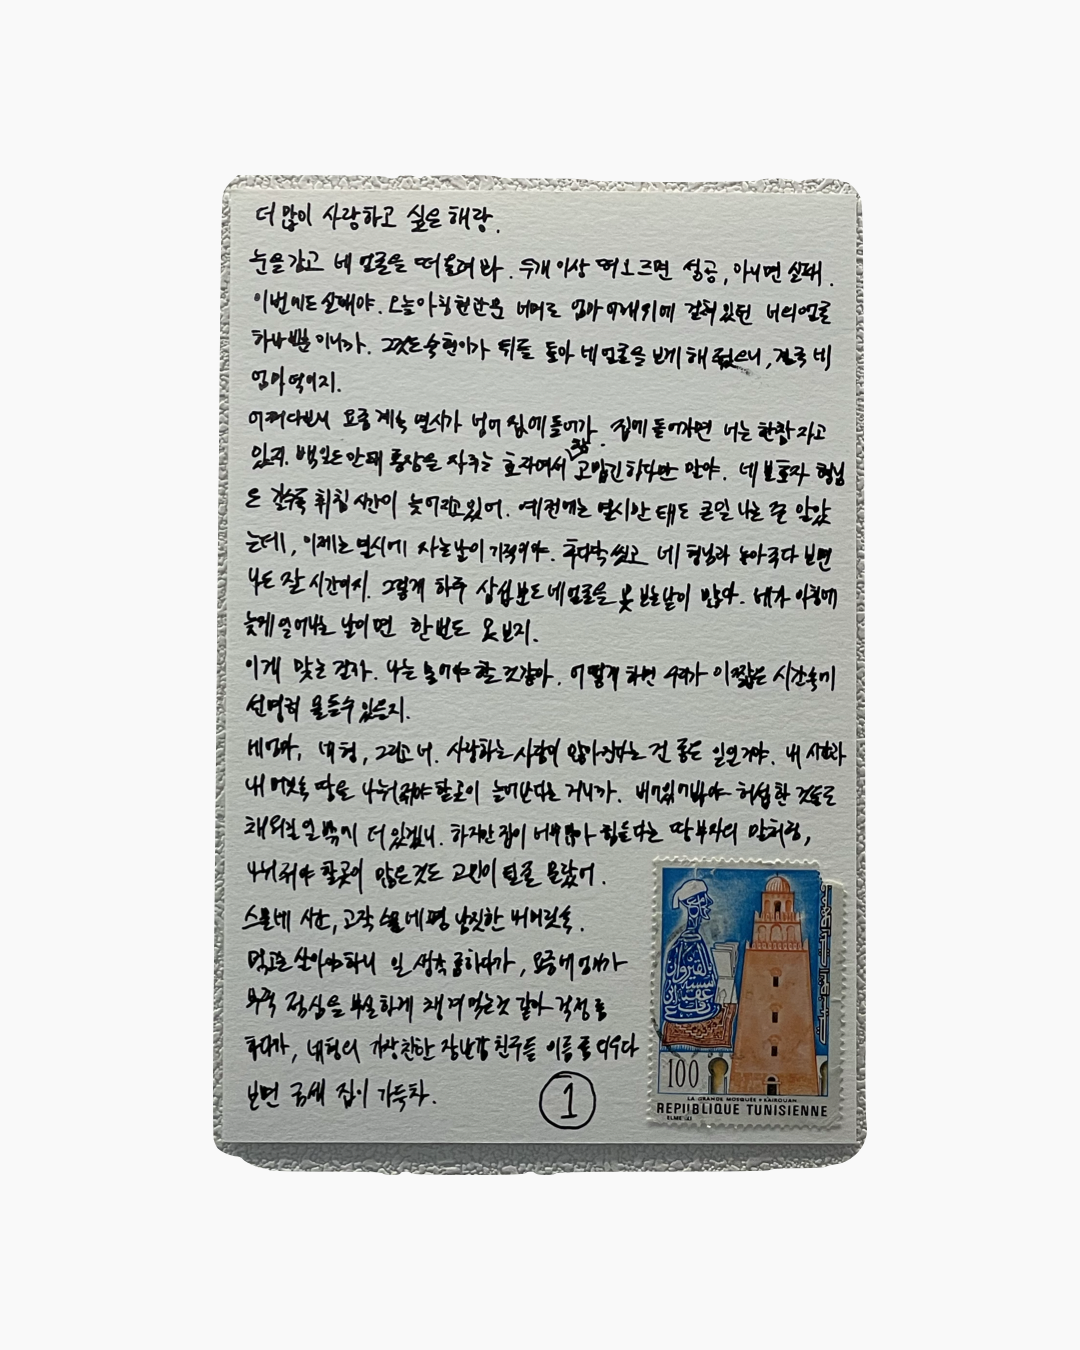 더 많이 사랑하고 싶은 해랑.
눈을 감고 네 얼굴을 떠올려봐. 두개 이상 떠오르면 성공, 아니면 실패.
이번에도 실패야. 오늘 아침 현관문 너머로 엄마 어깨 위에 걸쳐있던 너의 얼굴
하나뿐이니까. 그것도 숙현이가 뒤를 돌아 네 얼굴을 보게 해줬으니, 결국 네
엄마 덕이지.
어쩌다보니 요즘 계속 열시가 넘어 집에 들어가. 집에 들어가면 너는 한창 자고
있지. 백일도 안돼 통잠을 자주는 효자여서 참 고맙긴 하다만 말야. 네 보호자 형님
은 갈수록 취침 시간이 늦어지고 있어. 예전에는 열시만 돼도 큰일 나는 줄 알았
는데, 이제는 열시에 자는 날이 기적이야. 후다닥 씻고 네 형님과 놀아주다 보면
나도 잘 시간이지. 그렇게 하루 삼십분도 네 얼굴을 못 보는 날이 많다. 내가 아침에
늦게 일어나는 날이면 한번도 못 보지.
이게 맞는 걸까. 나는 물어야 할 것 같아. 어떻게 하면 우리가 이 짧은 시간 속에
선명히 물들 수 있는지.
네 엄마, 네 형, 그리고 너. 사랑하는 사람이 많아진다는 건 좋은 일일거야. 내 시간과
내 머릿속 땅을 나눠줘야 할 곳이 늘어난다는 거니까. 비어있어봐야 허섭한 것들로
채워질 일 밖에 더 있겠니. 하지만 집이 너무 많아 힘들다는 땅부자의 말처럼,
나눠줘야 할 곳이 많은 것도 고민이 될 줄 몰랐어.
스물네 시간, 고작 네평 남짓한 내 머릿속.
먹고는 살아야하니 일 생각 좀 하다가, 요즘 네 엄마가
점심을 부실하게 챙겨먹는 것 같아 걱정 좀
하다가, 네 형의 가장 친한 장난감 친구들 이름 좀 외우다
보면 금세 집이 가득차.
1
القيروان
100
LA GRANDE MOSQUÉE KAIROUAN
REPUBLIQUE TUNISIENNE